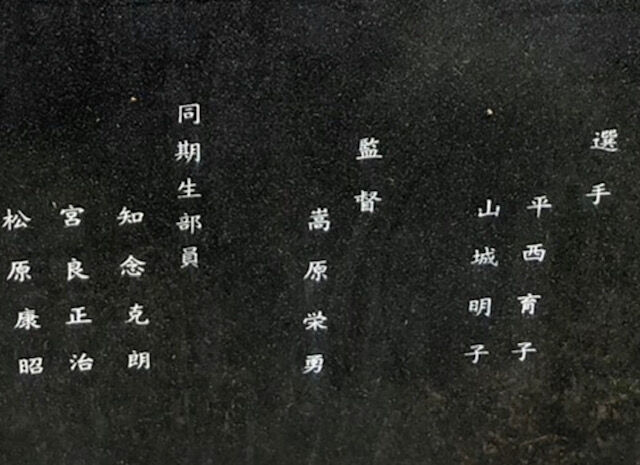 選手
平西育子
山城明子
監督
嵩原栄勇
同期生部員
知念克朗
宮良正治
松原康昭